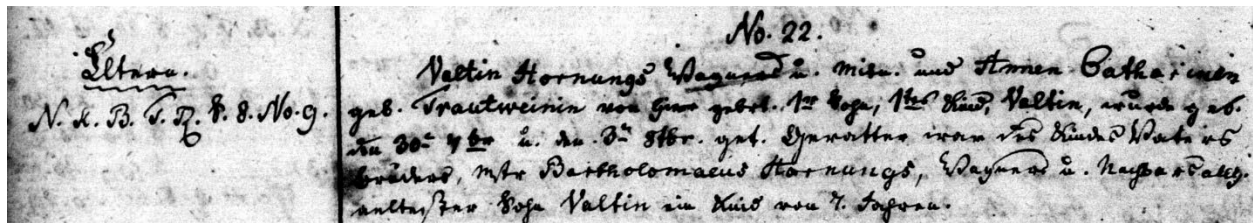 No. 22.
Eltern.
N. K. B. T. R. F. 8. No. 9.
Valtin Hornungs Wagners u. Mitn. und Annen Catharinen
geb. Trautweinin von hier gebrt. 1tr Sohn, 1tes Kind, Valtin, wurde geb.
den 30n 7br u. den 3n 8tbr. get. Gevatter war des Kindes Vaters
bruders, Mstr Bartholomaeus Hornungs, Wagners u. Nachbars allh.
aeltester Sohn Valtin ein Kind von 7. Jahren.